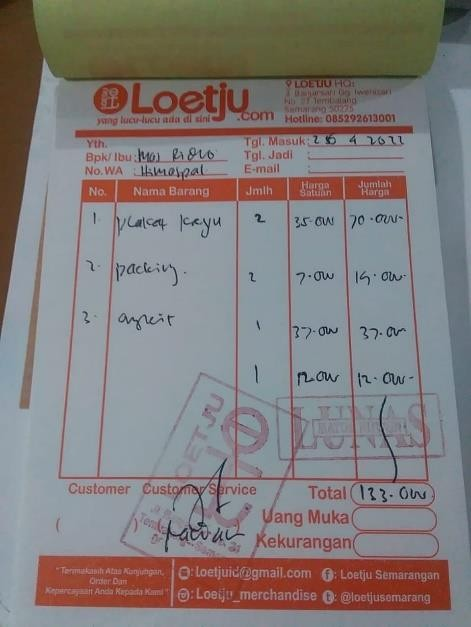 Loetju.com
yang lucu-lucu ada di sini
LOETJU HQ:
Jl Banjarsari Gg. Iwenisari
No. 27 Tembalang
Semarang 50275
Hotline: 085292613001
Yth.
Bpk/ Ibu : Mas Ridho
No. WA : Himaspal
Tgl. Masuk : 26 4 2022
Tgl. Jadi :
E-mail :
No. Nama Barang Jmlh Harga Satuan Jumlah Harga
1. plakat kayu 2 35.000 70.000
2. packing. 2 7.000 14.000
3. 1 37.000 37.000
1 12.000 12.000
LUNAS
LOETJU
Customer Customer Service
( )
Total 133.000
Uang Muka
Kekurangan
"Terimakasih Atas Kunjungan,
Order Dan
Kepercayaan Anda Kepada Kami"
: Loetjuid@gmail.com : Loetju Semarang
: Loetju_merchandise : @loetjusemarang